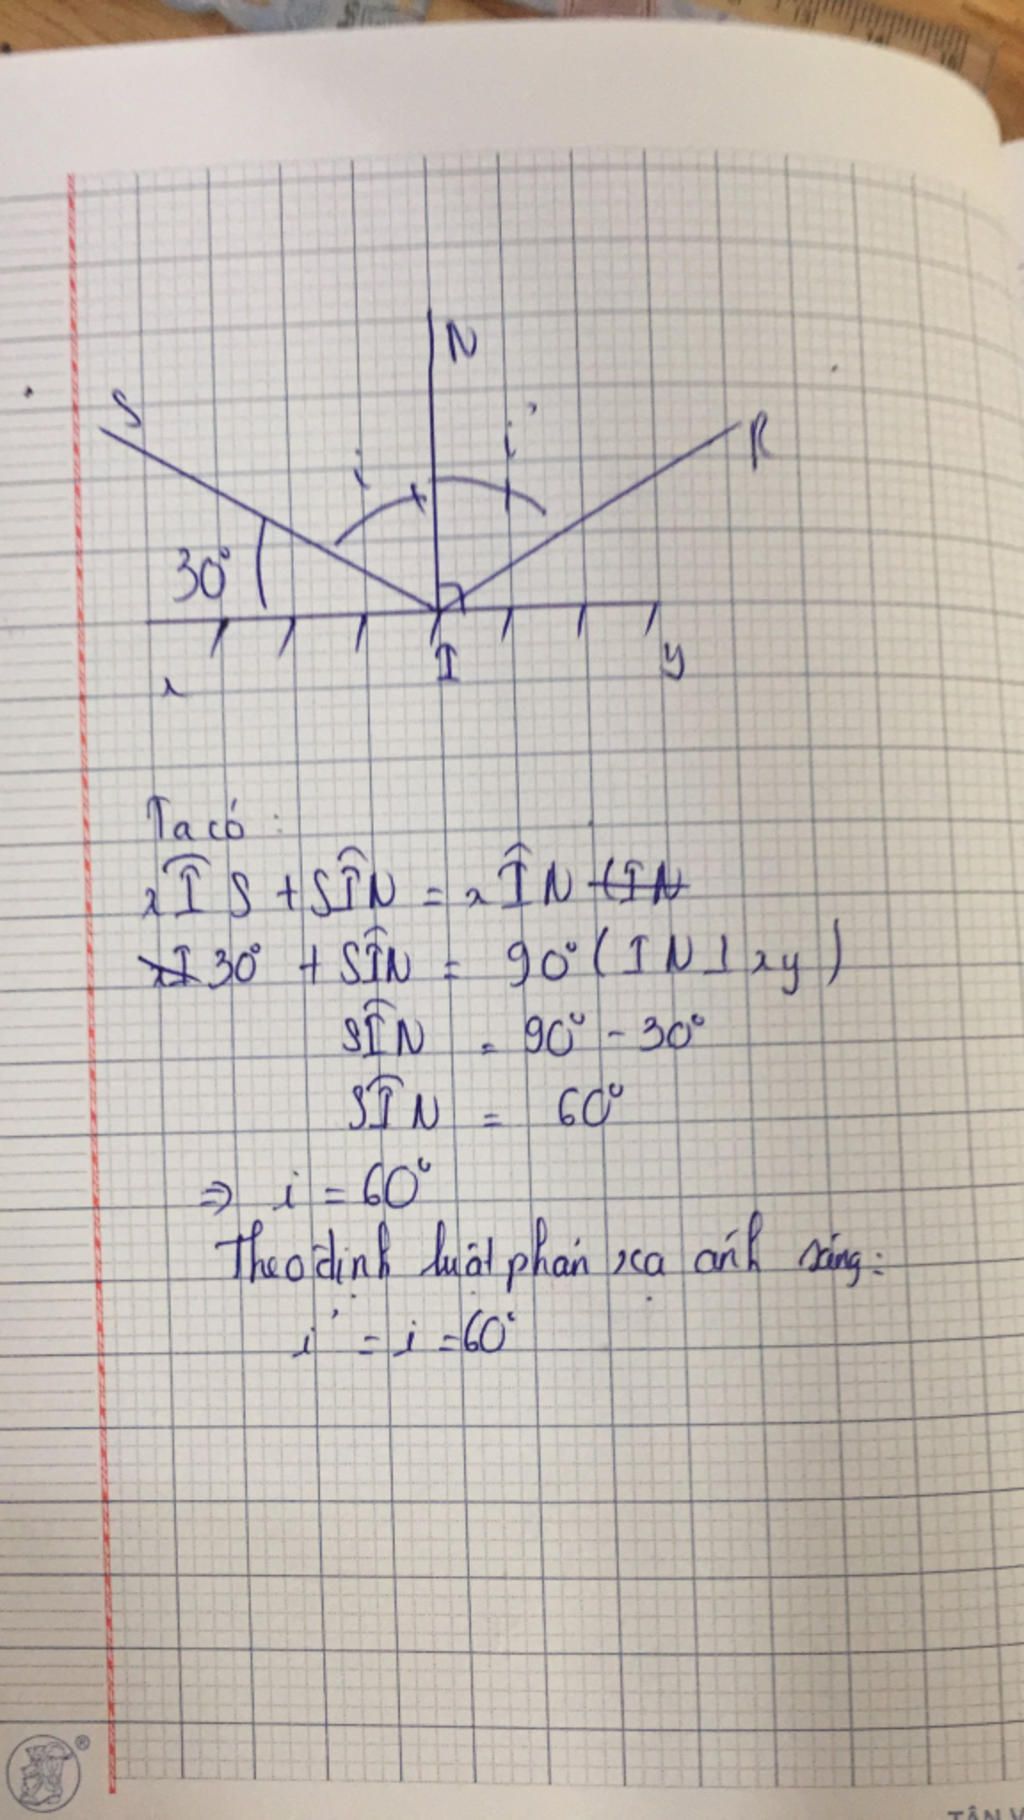 N
S
i
i'
R
30°
I
x
y
Ta có:
xÎS + SÎN = xÎN (IN
xI 30° + SÎN = 90° (IN⊥xy)
SÎN = 90° - 30°
SÎN = 60°
⇒ i = 60°
Theo định luật phản xạ ánh sáng:
i' = i = 60°
®
TÂN